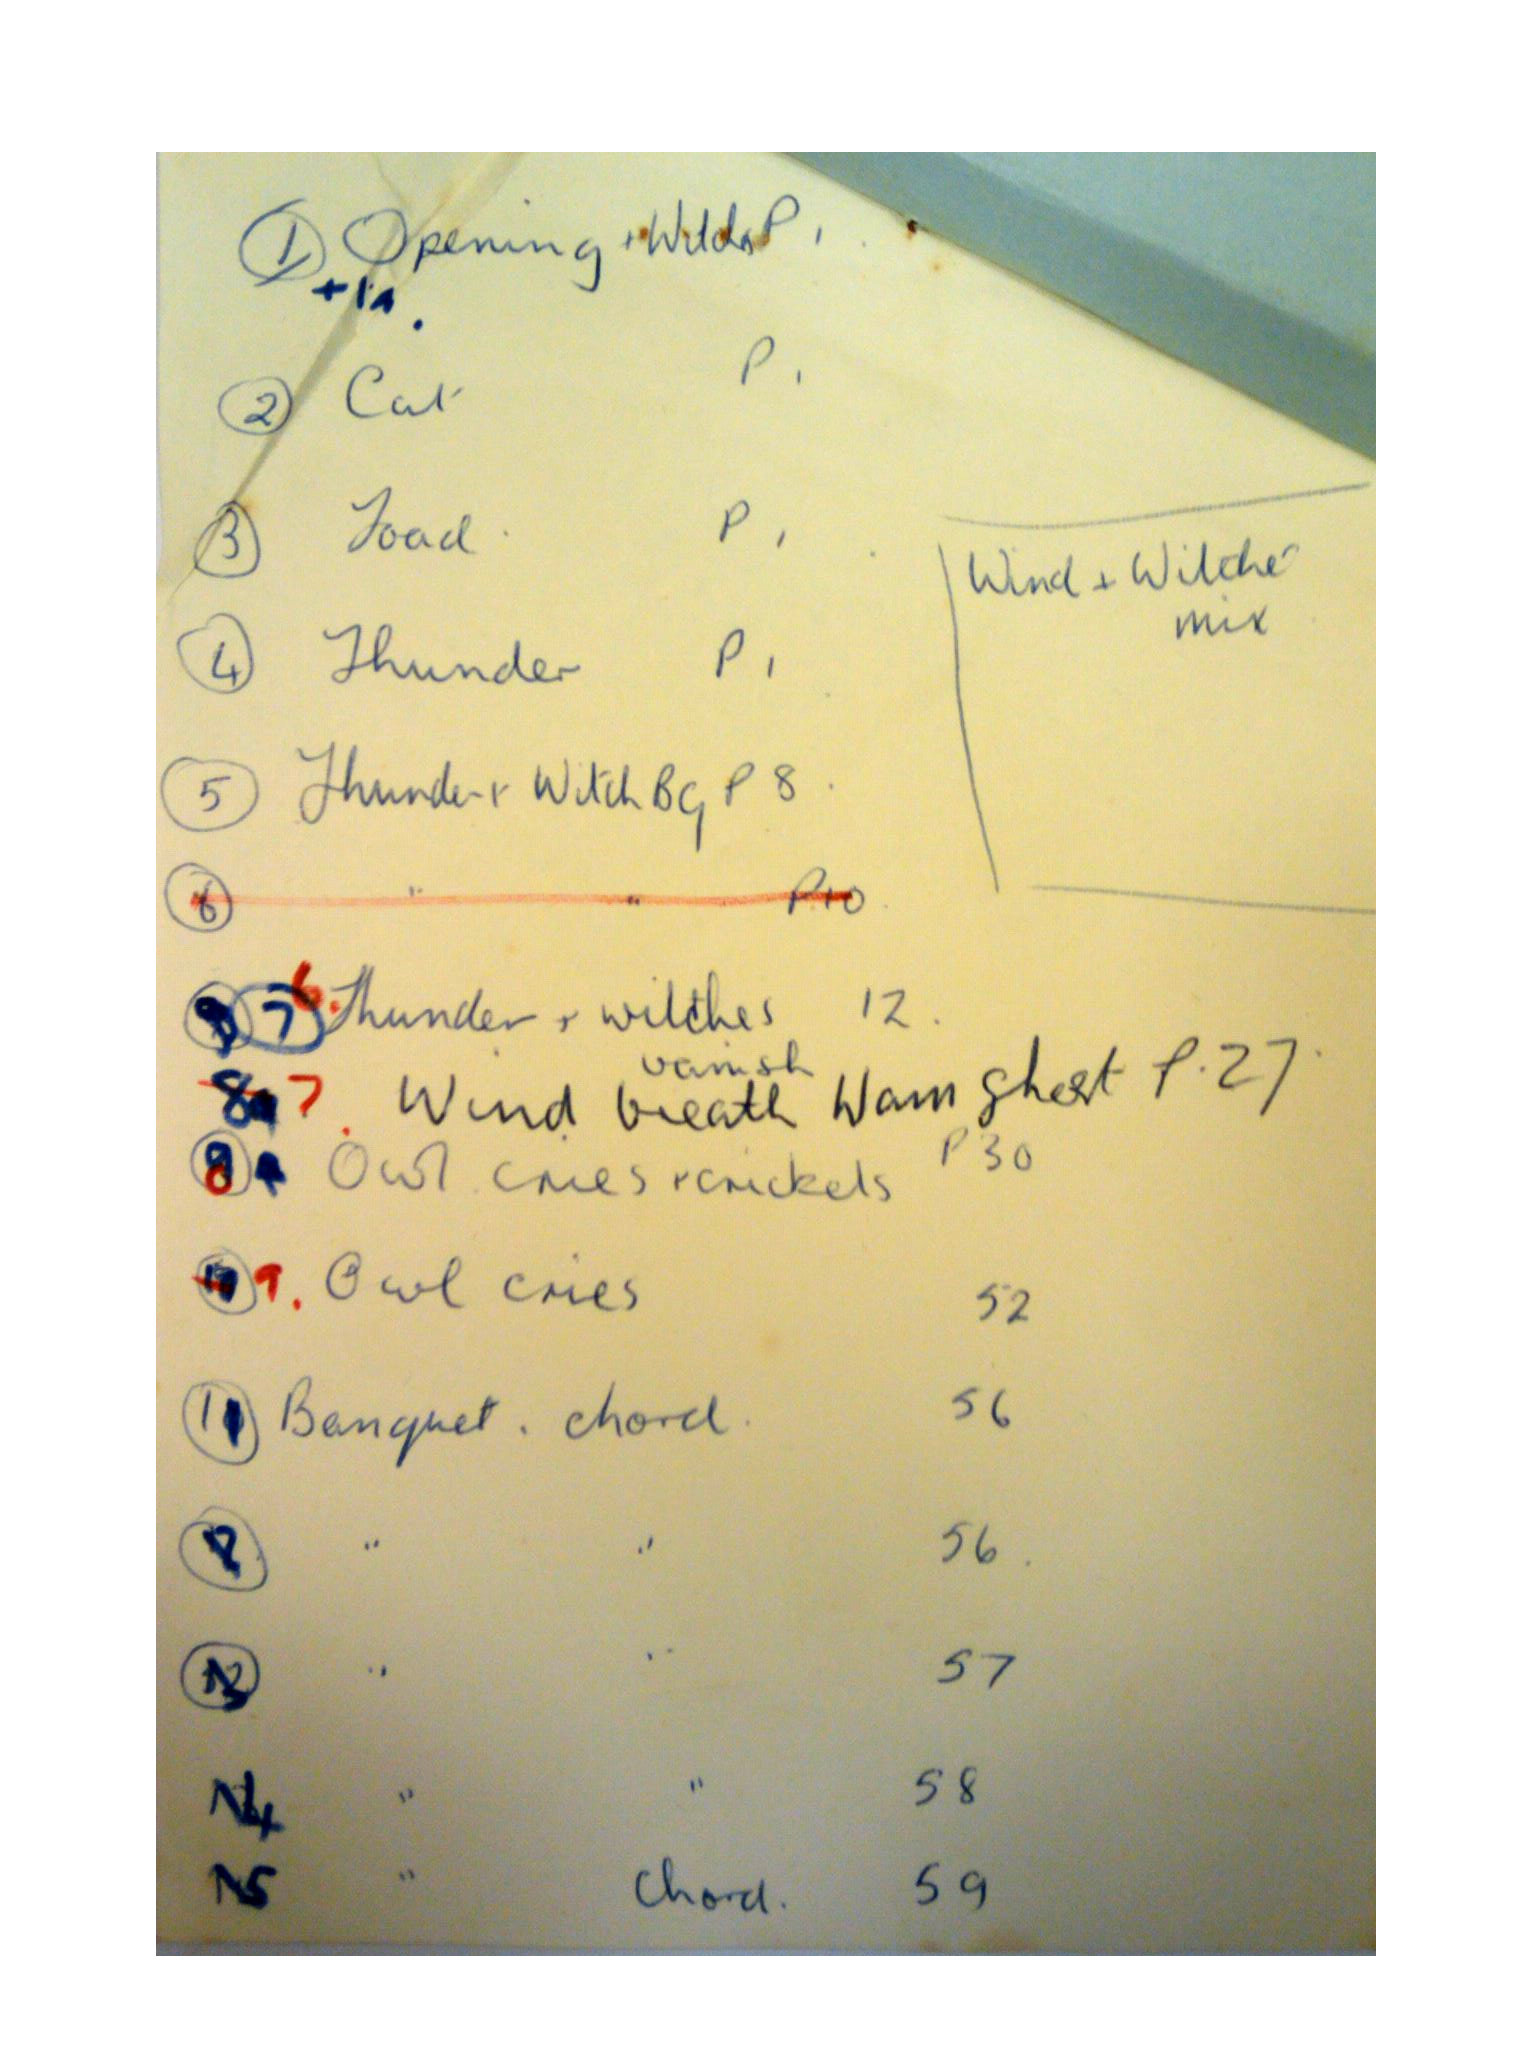 1 Opening + P 1
+1a.
2 Cat P 1
3 Toad. P 1
4 Thunder P 1
Wind + Witche
mix
5 Thunder + Witch BG P 8.
6 " " P10.
7 6. Thunder + witches 12.
vanish
8a 7. Wind breath Wam ghost P.27.
8 Owl cries + crickets P30
9. Owl cries 52
11 Banquet. chord. 56
" " 56.
13 " " 57
14 " " 58
15 " Chord. 59